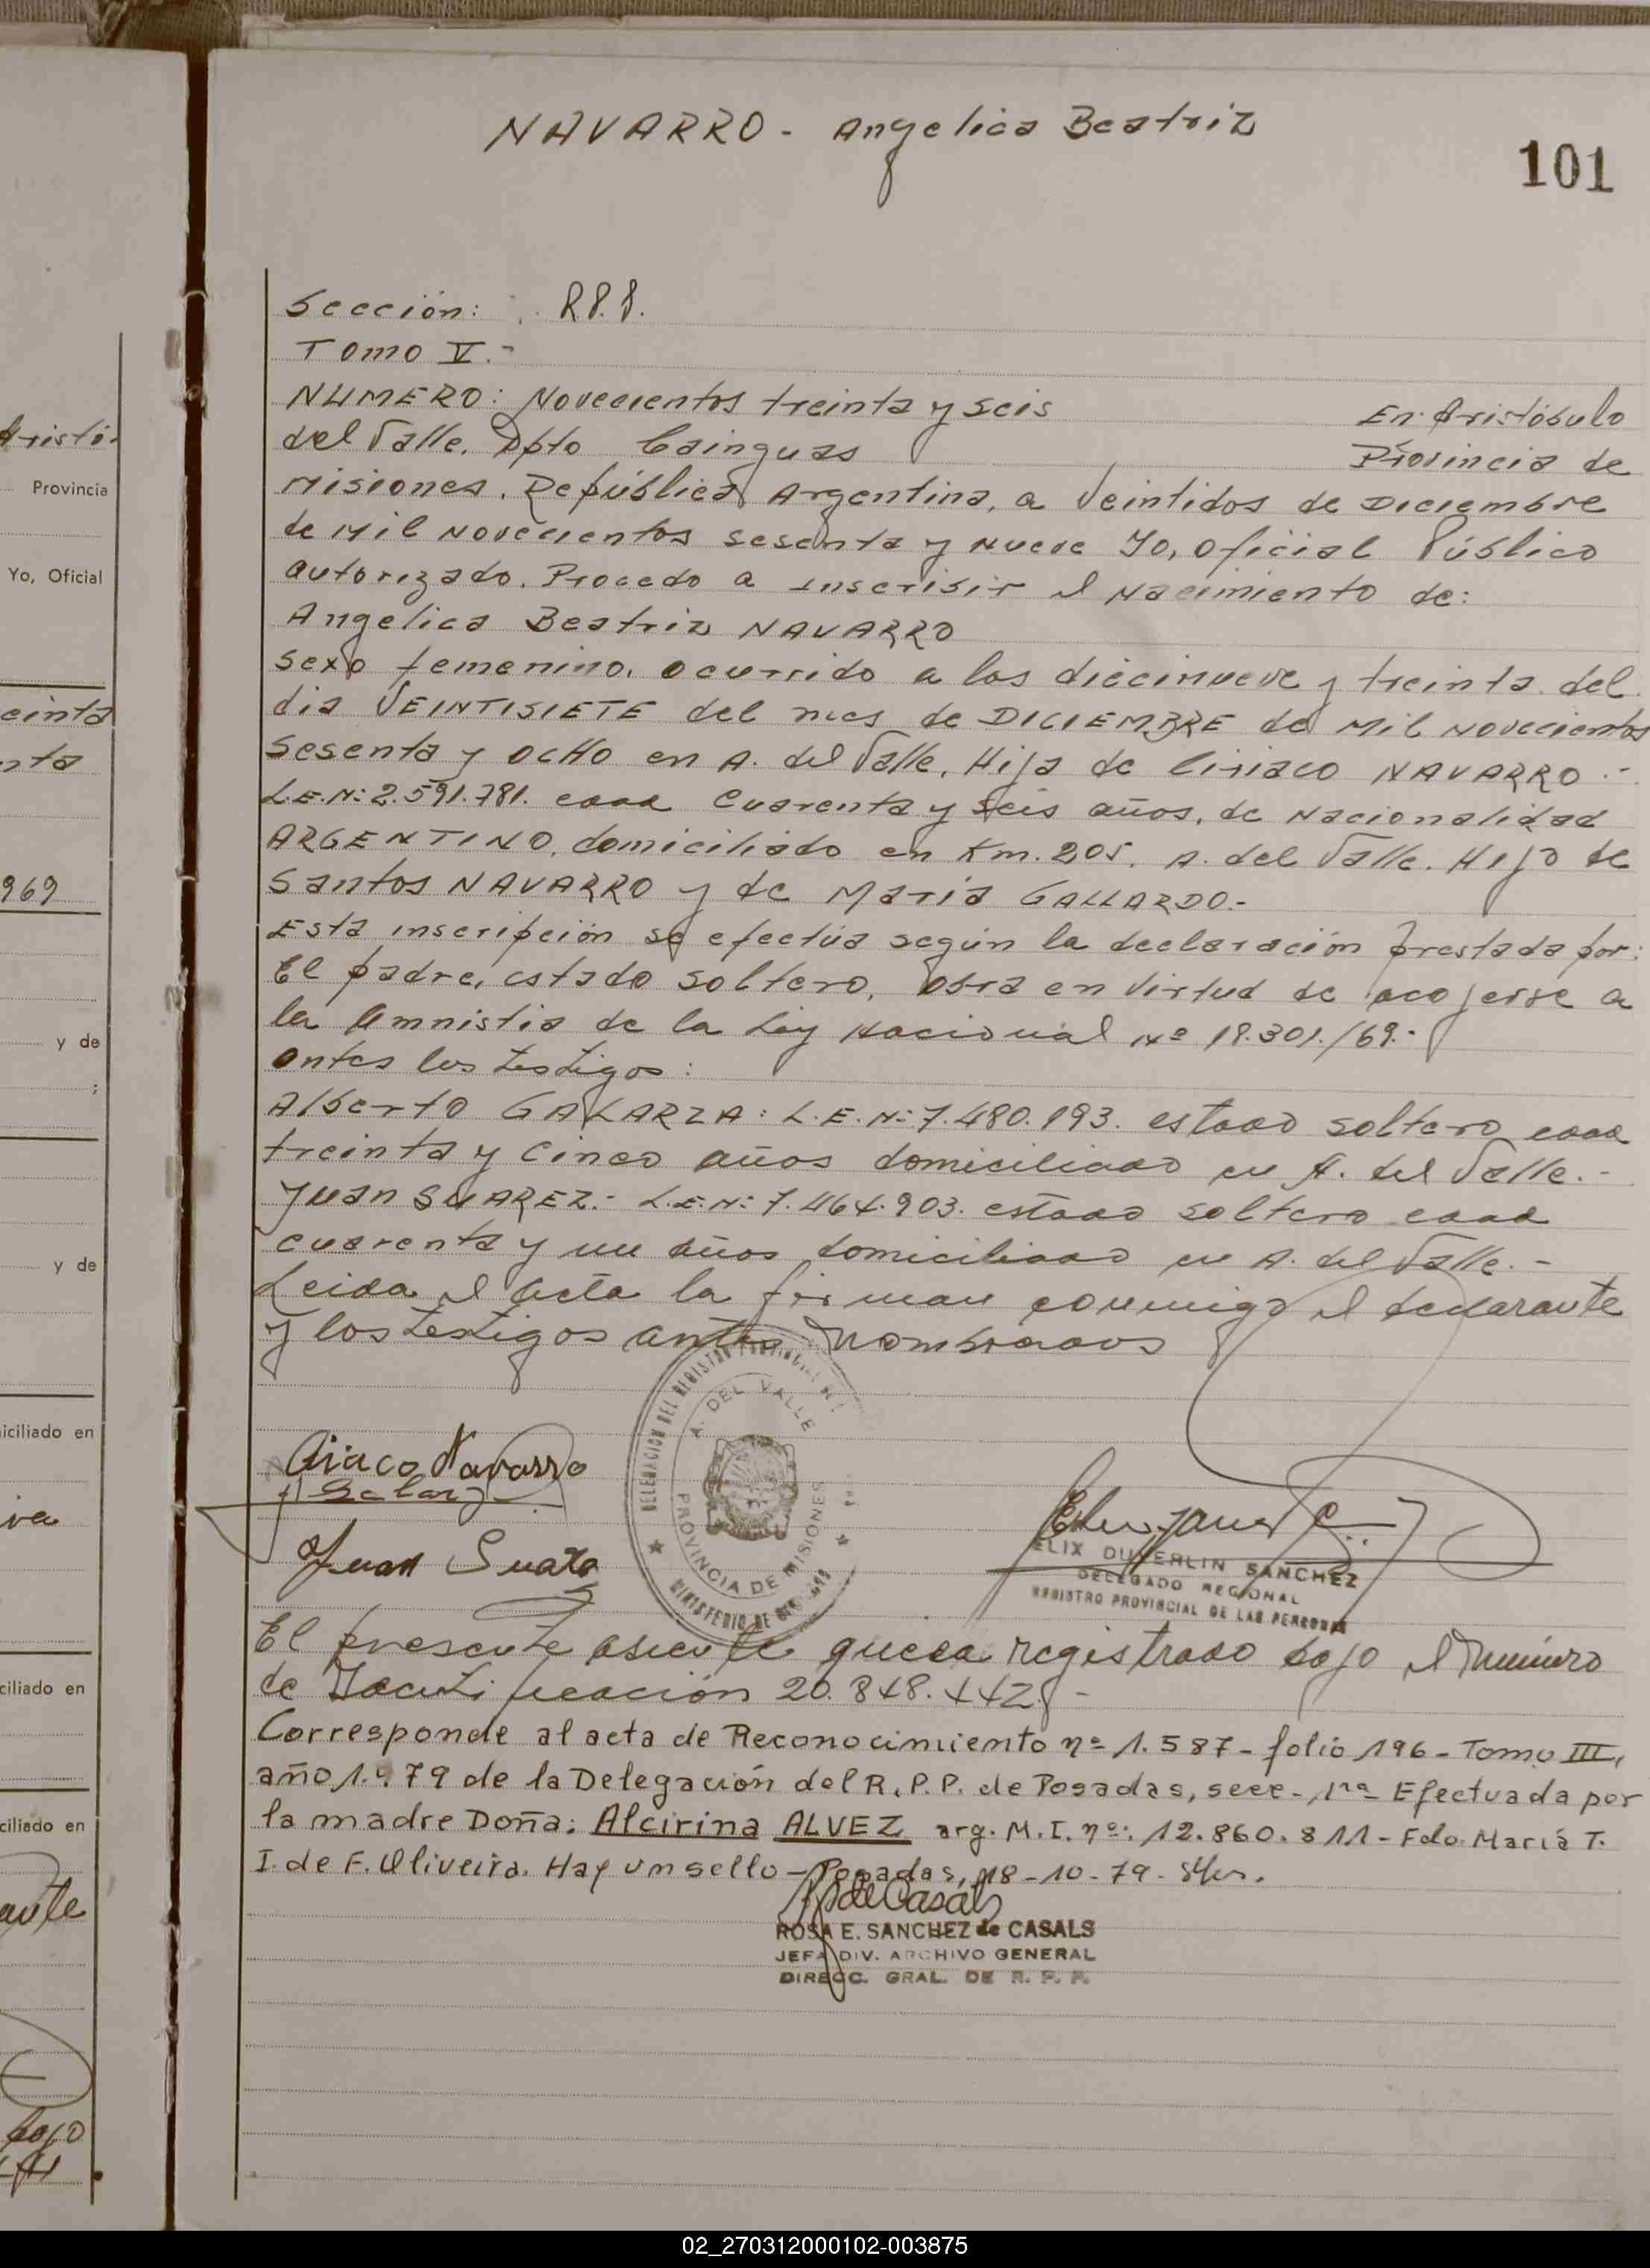 NAVARRO - Angelica Beatriz
101
Sección: R.P.P.
Tomo V.-
NUMERO: Novecientos treinta y seis En Aristóbulo
del Valle. Dpto Cainguas Provincia de
Misiones. República Argentina, a Veintidos de Diciembre
de Mil Novecientos sesenta y nueve Yo, Oficial Público
autorizado. Procedo a inscribir el Nacimiento de:
Angelica Beatriz NAVARRO
sexo femenino. ocurrido a las diecinueve y treinta del
dia VEINTISIETE del mes de DICIEMBRE de Mil Novecientos
sesenta y OCHO en A. del Valle. Hija de Ciriaco NAVARRO.-
L.E.N: 2.591.781. edad Cuarenta y seis años, de Nacionalidad
ARGENTINO, domiciliado en Km. 205. A. del Valle. Hijo de
Santos NAVARRO y de Maria GALLARDO.-
Esta inscripción se efectúa según la declaración prestada por:
El padre, estado soltero, Obra en virtud de acojerse a
la Amnistia de la Ley Nacional Nº 18.301./69.-
antes los testigos:
Alberto GALARZA: L.E.N: 7.480.193. estado soltero edad
treinta y Cinco años domiciliado en A. del Valle.-
Juan SUAREZ.- L.E.N: 7.464.903. estado soltero edad
cuarenta y un años domiciliado en A. del Valle.-
Leida el acta la firman conmigo el declarante
y los testigos antes nombrados
DELEGACION DEL REGISTRO PROVINCIAL
A. DEL VALLE
PROVINCIA DE MISIONES
MINISTERIO DE
Ciriaco Navarro
A Galarza
Juan Suarez
ELIX DUVERLIN SANCHEZ
DELEGADO REGIONAL
REGISTRO PROVINCIAL DE LAS PERSONAS
El presente asiento queda registrado bajo el Número
de Identificación 20.848.442.-
Corresponde al acta de Reconocimiento nº 1.587 - folio 196 - Tomo III,
año 1.979 de la Delegación del R.P.P. de Posadas, secc. 1ra Efectuada por
la madre Doña: Alcirina ALVEZ arg. M.I. nº: 12.860.811 - Fdo. Maria T.
I. de F. Oliveira. Hay un sello - Posadas, 18-10-79.
R S de Casals
ROSA E. SANCHEZ de CASALS
JEFA DIV. ARCHIVO GENERAL
DIRECC. GRAL. DE R. P. P.
Aristó-
Provincia
Yo, Oficial
einta
nta
969
y de
;
y de
niciliado en
iva
ciliado en
ciliado en
ante
bajo
02_270312000102-003875